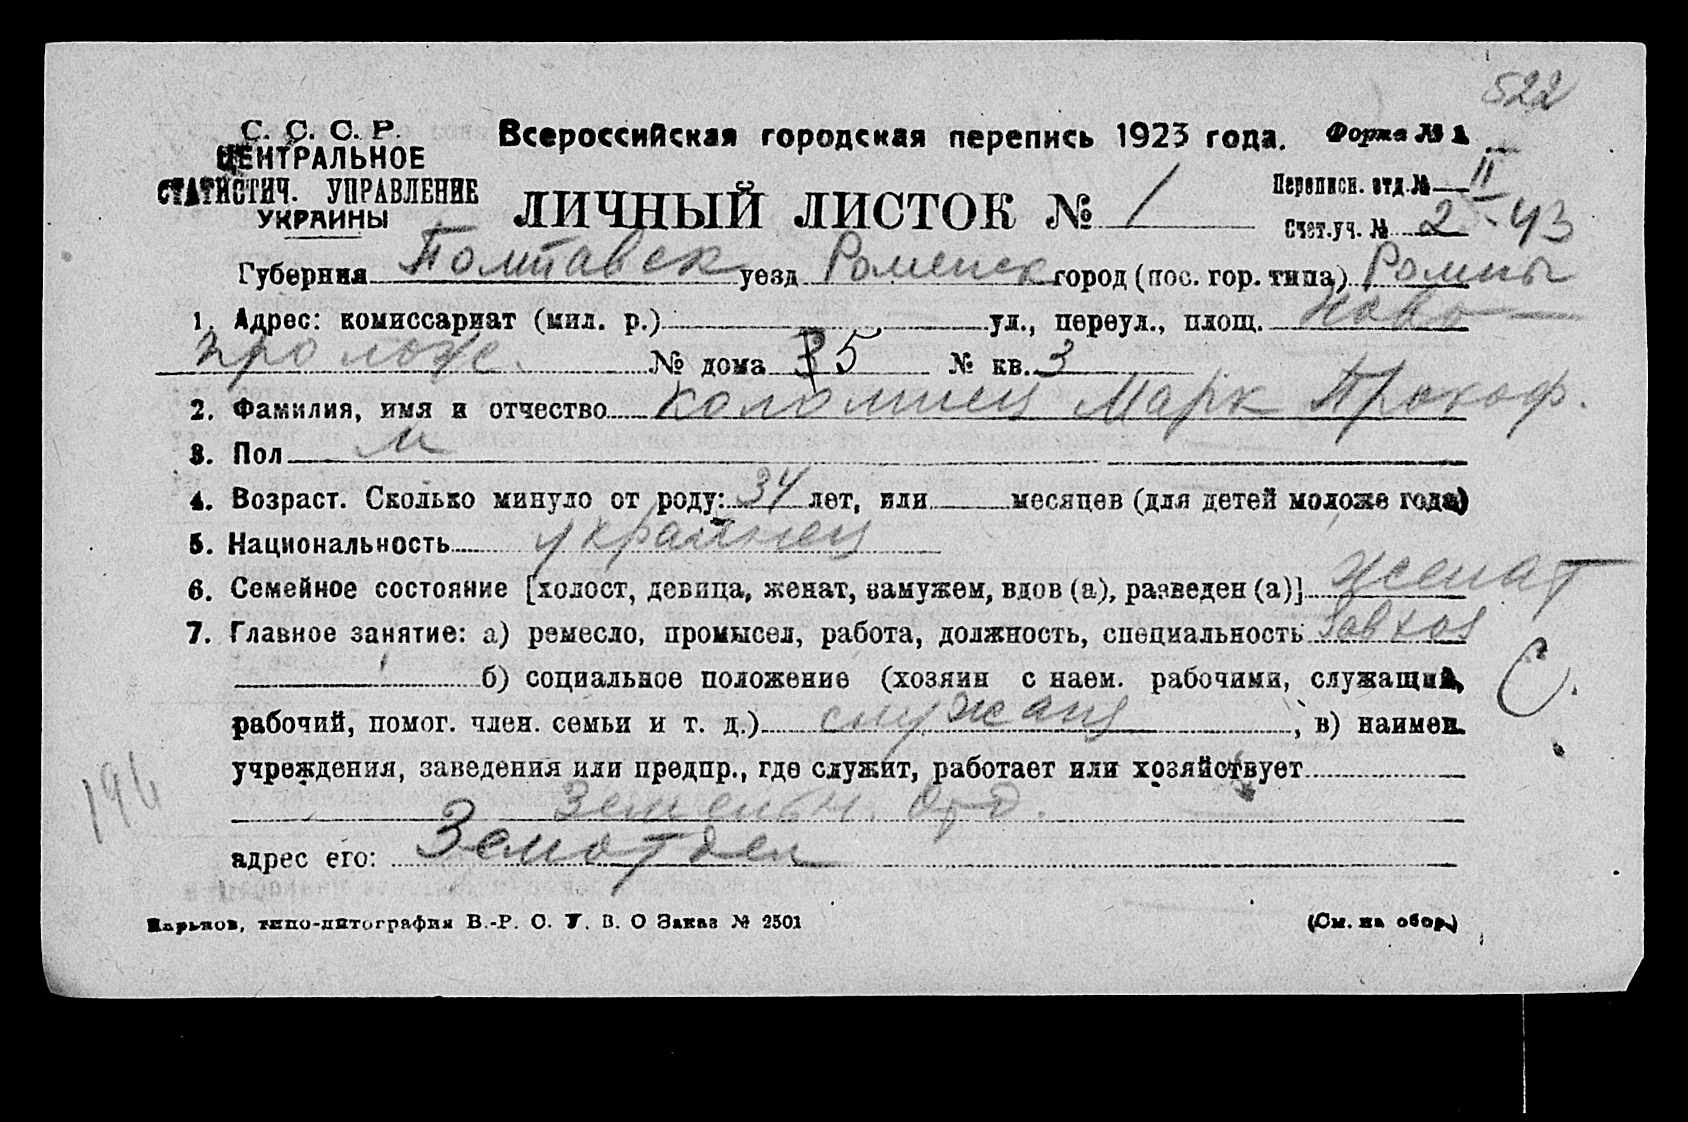 522
С. С. С. Р.
ЦЕНТРАЛЬНОЕ
СТАТИСТИЧ. УПРАВЛЕНИЕ
УКРАИНЫ
Всероссийская городская перепись 1923 года. Форма № 1
ЛИЧНЫЙ ЛИСТОК № 1
Переписн. отд. № II
Счет. уч. № 2 - 43
Губерния Полтавск уезд Роменск город (пос. гор. типа) Ромны
1. Адрес: комиссариат (мил. р.) ул., переул., площ. Ново-
пролож. № дома 5 № кв. 3
2. Фамилия, имя и отчество Коломиец Марк Прокоф.
3. Пол М
4. Возраст. Сколько минуло от роду: 34 лет, или месяцев (для детей моложе года)
5. Национальность украинец
6. Семейное состояние [холост, девица, женат, замужем, вдов (а), разведен (а)] женат
7. Главное занятие: а) ремесло, промысел, работа, должность, специальность Завхоз
б) социальное положение (хозяин с наем. рабочими, служащий,
С.
рабочий, помог. член. семьи и т. д.) служащ, в) наимен.
учреждения, заведения или предпр., где служит, работает или хозяйствует
Земельн. отд.
196
адрес его: Земотдел
Харьков, типо-литография В.-Р. О. У. В. О Заказ № 2501
(См. на обор.)